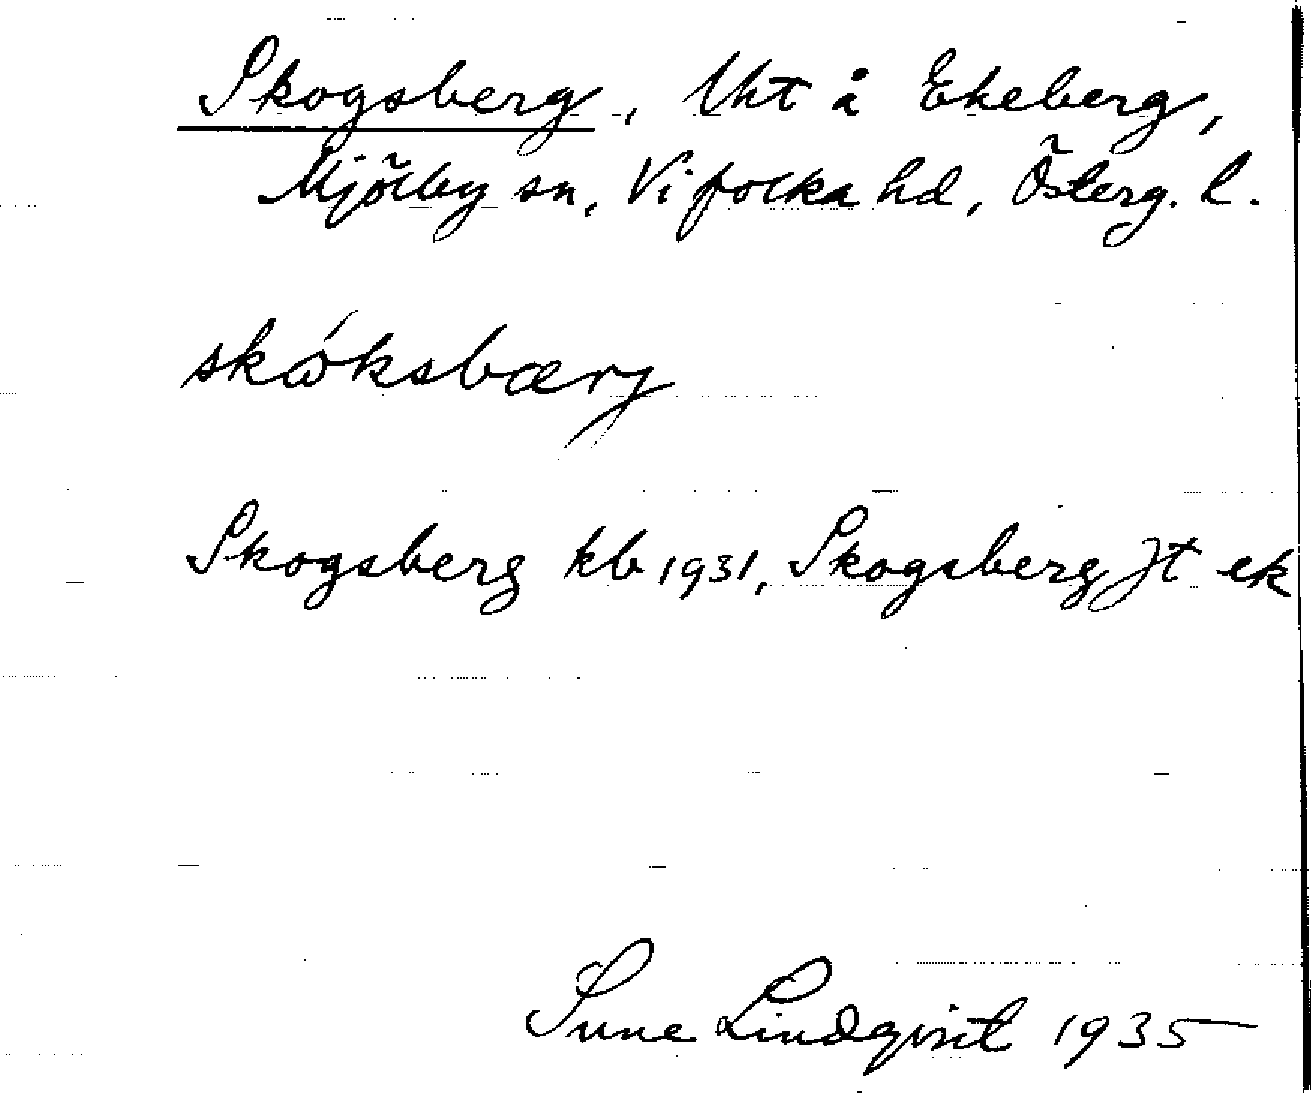 Skogsberg, Uht å Ekeberg,
Mjölby sn, Vifolka hd, Österg. l.
skớksbærj
Skogsberg kb 1931, Skogsberg Jt ek
Sune Lindqvist 1935